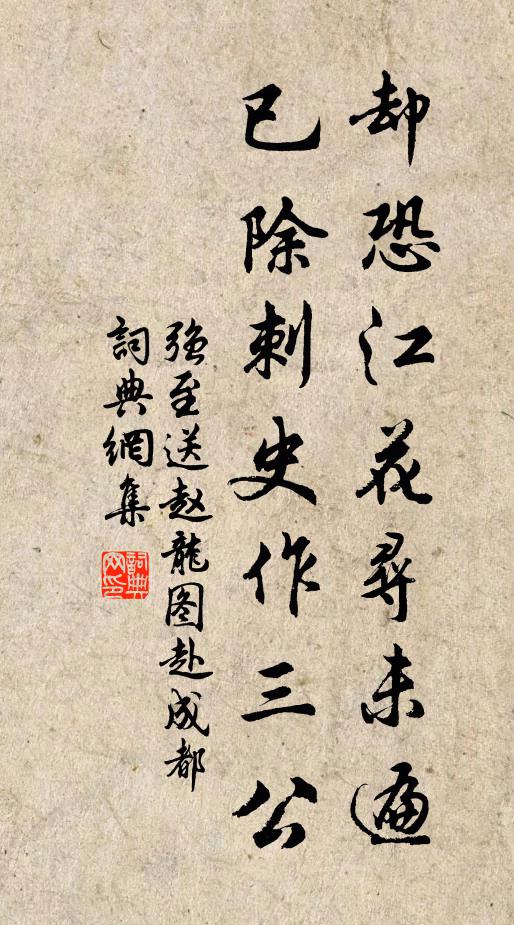 却恐江花尋未遍
已除刺史作三公
强至送赵龍图赴成都
詞典網集
詞典网印